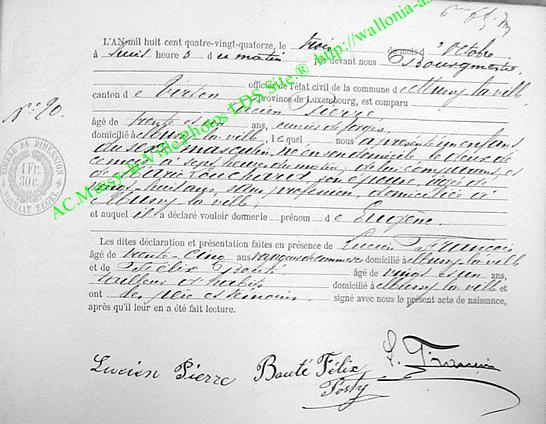 L'AN mil huit cent quatre-vingt-quatorze, le trois du mois d'Octobre
à huit heures du matin Par devant nous Bourgmestre
officier de l'état civil de la commune de Mussy la ville
canton de Virton province de Luxembourg, est comparu
Nº 90. Lucien Pierre,
âgé de trente et ans, ouvrier de forges,
domicilié à Mussy la ville, lequel nous a présenté un enfant
du sexe masculin, né en son domicile, le deux de
ce mois à sept heures du matin, de lui comparant, et
de Marie son épouse, âgée de
vingt huit ans, sans profession, domiciliée à
Mussy la ville;
et auquel il a déclaré vouloir donner le prénom de Eugène.
Les dites déclaration et présentation faites en présence de Lucien François
âgé de trente-cinq ans voyageur de commerce domicilié à Mussy la ville
et de Félix Bauté âgé de vingt et un ans,
tailleur et habits domicilié à Mussy la ville et
ont les père et témoins signé avec nous le présent acte de naissance,
après qu'il leur en a été fait lecture.
Lucien Pierre Bauté Félix L. François
TIMBRE DE DIMENSION
1 FR.
30 C.
AC.Mussy-la-Ville.Photos LDS Site.® http://wallonia-as